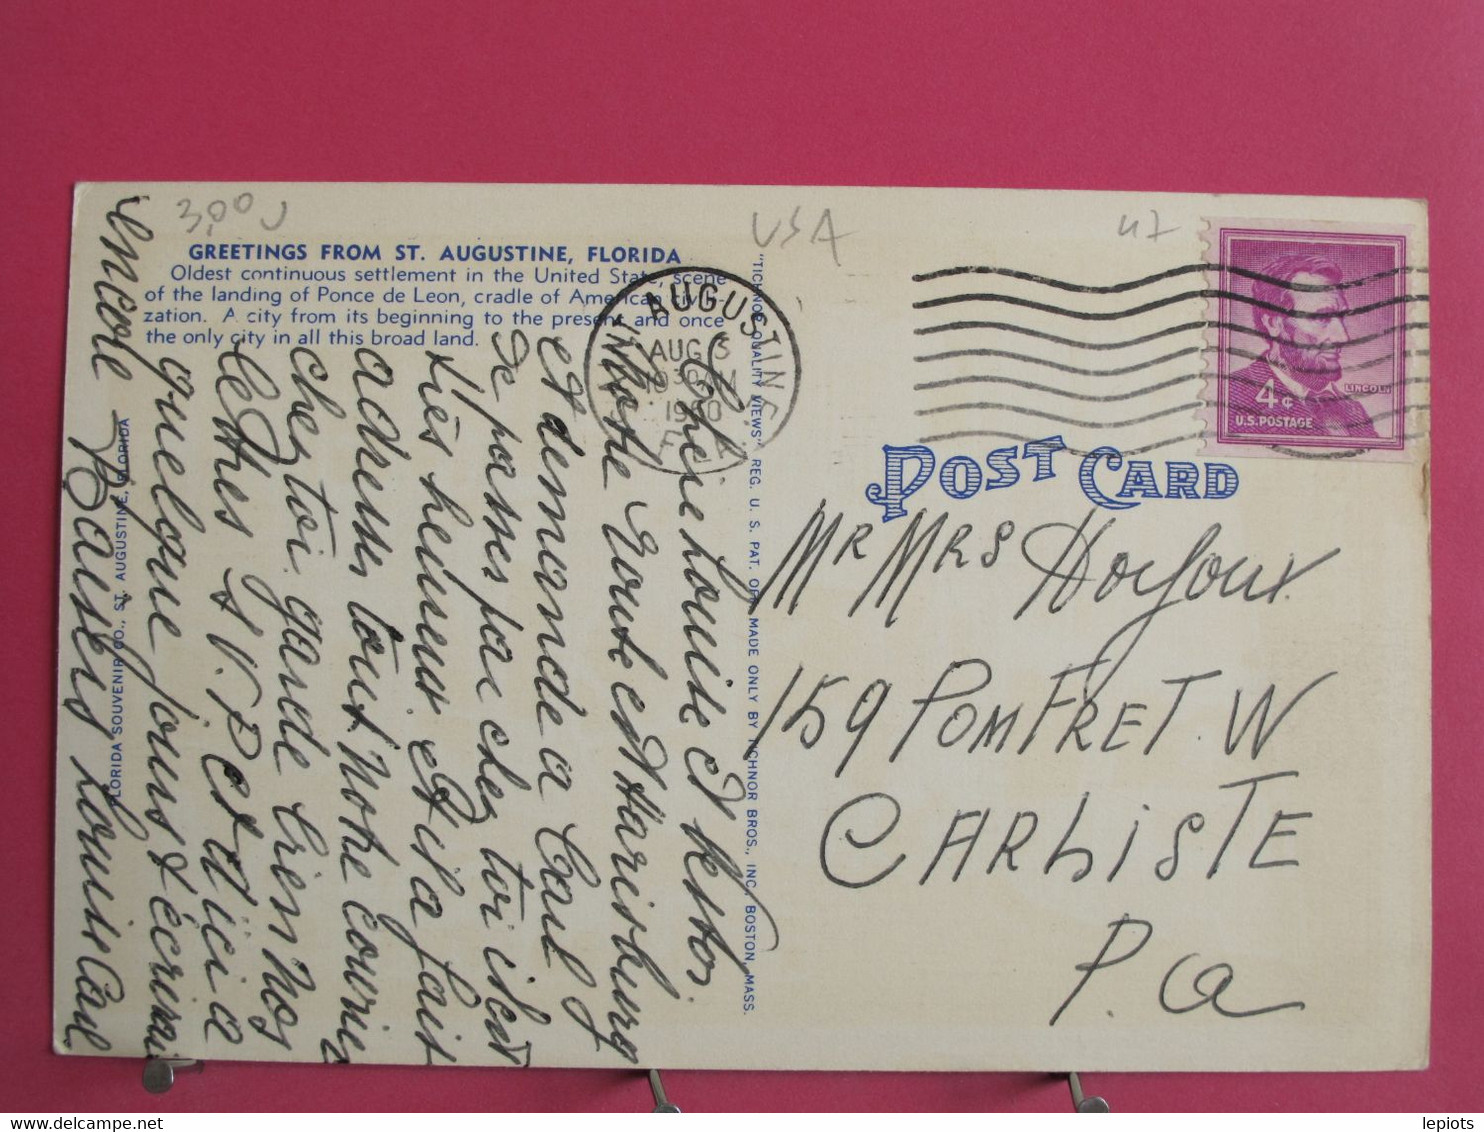 3,00
USA
47
GREETINGS FROM ST. AUGUSTINE, FLORIDA
Oldest continuous settlement in the United State, scene
of the landing of Ponce de Leon, cradle of American civili-
zation. A city from its beginning to the present and once
the only city in all this broad land.
SAINT AUGUSTINE
AUG 5
10 30 AM
1960
FLA.
4¢
LINCOLN
U.S. POSTAGE
POST CARD
Mr MRS
159 POMFRET. W
CARLISTE
P. a
"TICHNOR QUALITY VIEWS" REG. U. S. PAT. OFF. MADE ONLY BY TICHNOR BROS., INC. BOSTON, MASS.
Chère Louise et
Notre Route est Harisburg
et demande a Carl
de passer par chez toi il est
très heureux et il a fait
adresser tout notre courrie
chez toi. garde bien nos
lettres S.V.P. et d'ici a
quelque jours t'écrirai
encore Baisers Louise Carl
FLORIDA SOUVENIR CO., ST. AUGUSTINE, FLORIDA
lepiots
delcampe.net